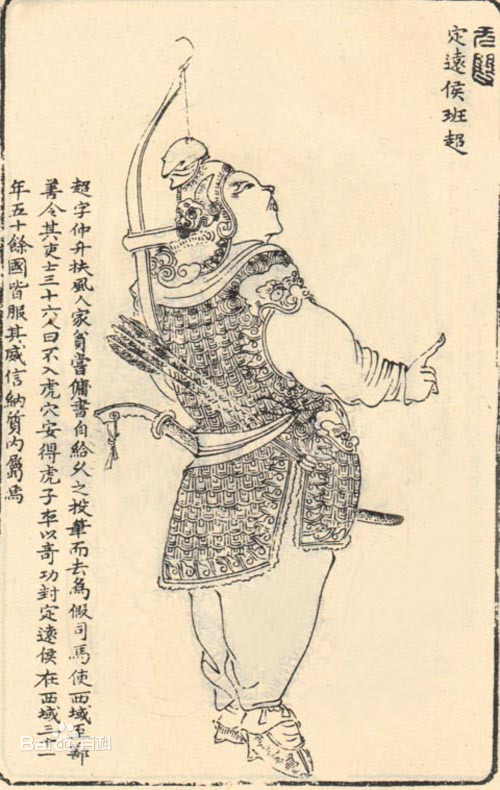 定遠侯班超
超字仲升扶風人家貧嘗傭書自給久之投筆而去為假司馬使西域至鄯
善令其吏士三十六人曰不入虎穴安得虎子卒以奇功封定遠侯在西域三十一
年五十餘國皆服其威信納質內屬焉
Baidu百科